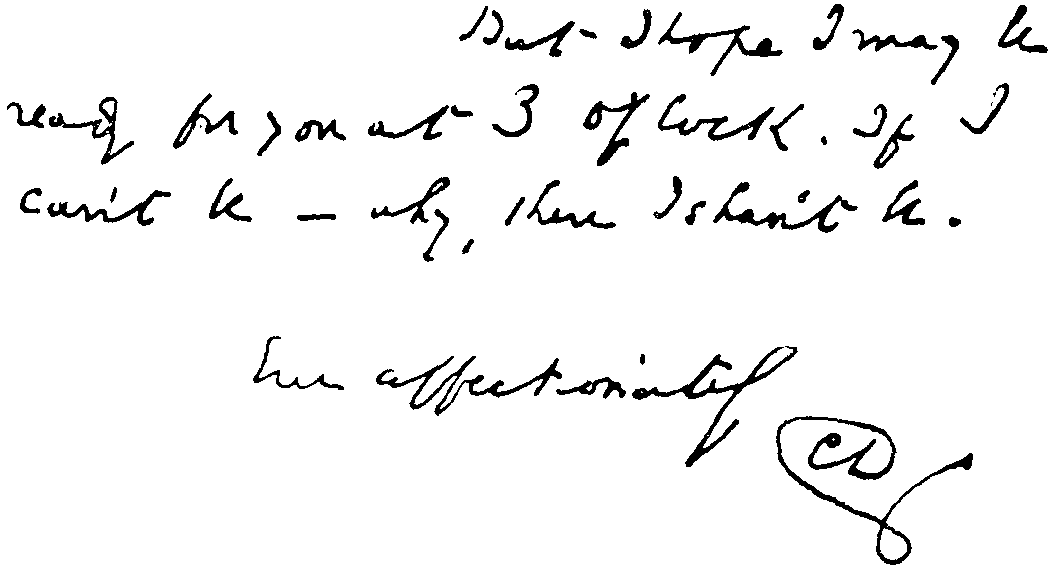 But I hope I may be
ready for you at 3 o'clock. If I
can't be — why, then I shan't be.
Ever affectionately
CD